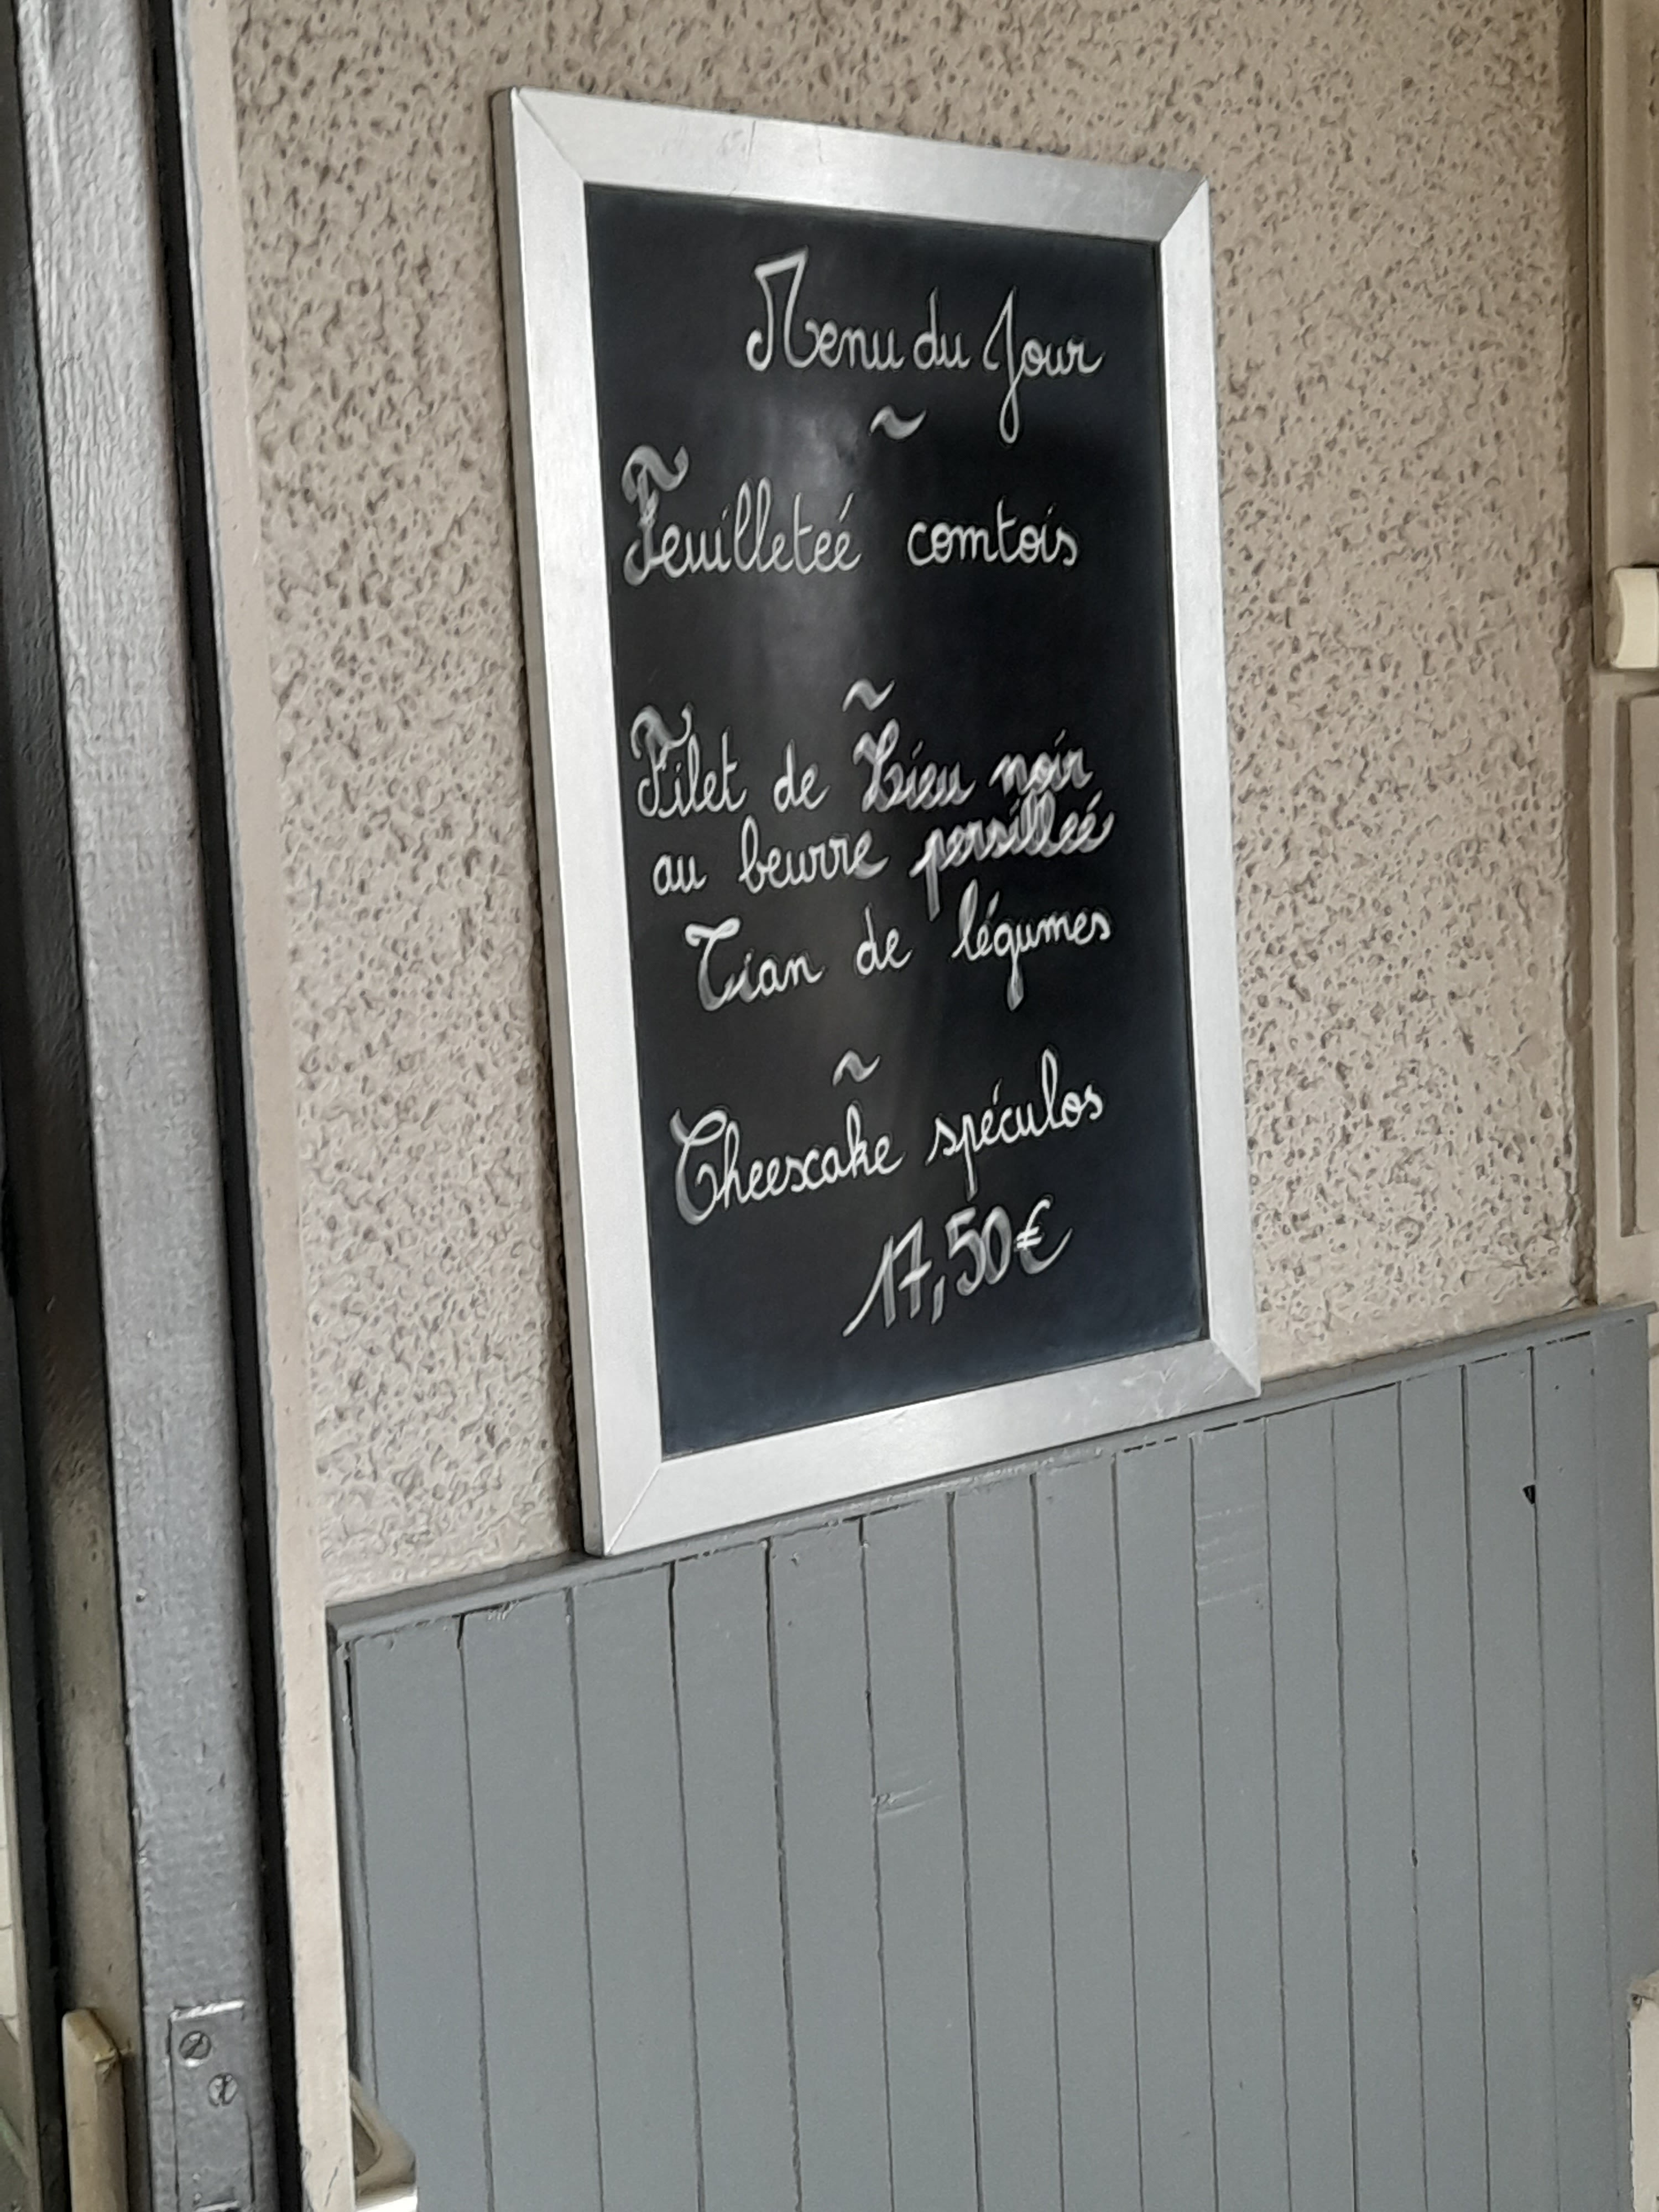 Menu du Jour
~
Feuilleteé comtois
~
Filet de Lieu noir
au beurre persilleé
Tian de légumes
~
Cheescake spéculos
17,50€